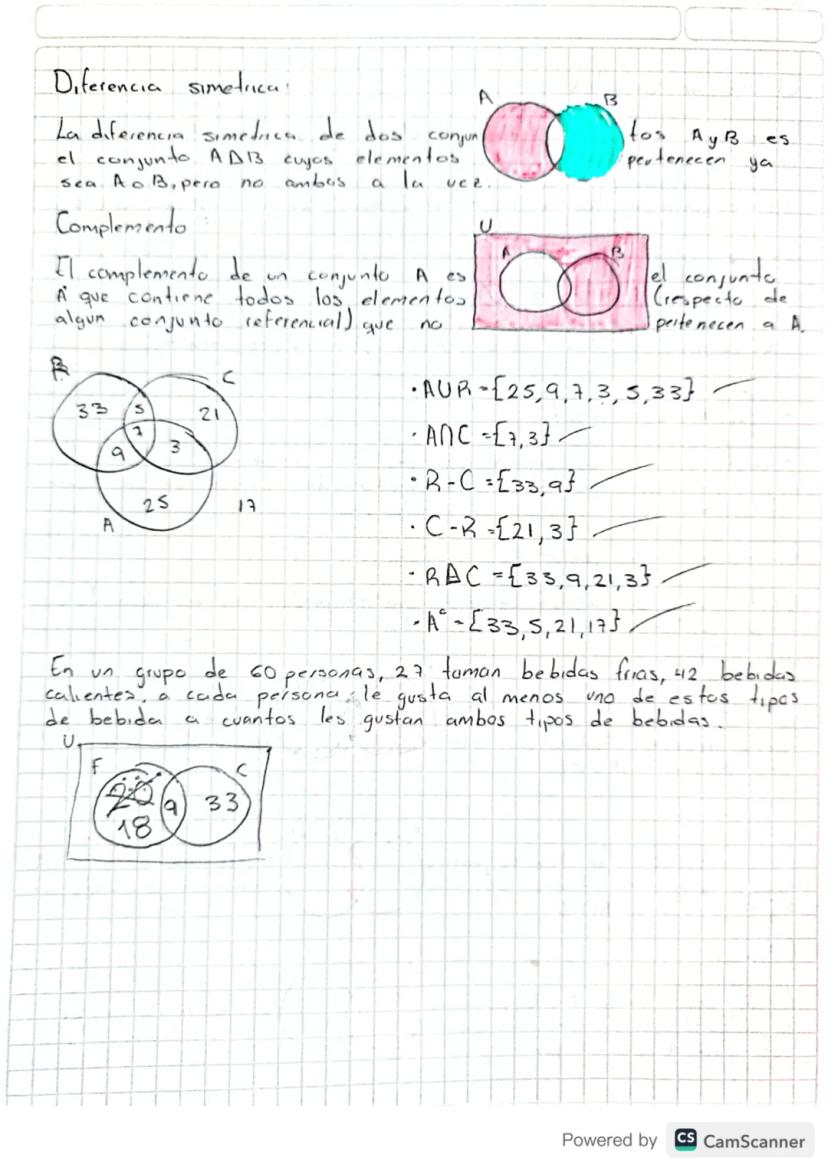 Diferencia simetrica:
A B
La diferencia simetrica de dos conjun tos A y B es
el conjunto AΔB cuyos elementos pertenecen ya
sea A o B, pero no ambos a la vez.
Complemento
U
A B
El complemento de un conjunto A es el conjunto
A' que contiene todos los elementos (respecto de
algun conjunto referencial) que no pertenecen a A.
R C
33 5 21
7
9 3
25 17
A
· AUR = {25, 9, 7, 3, 5, 33}
· A∩C = {7, 3}
· R - C = {33, 9}
· C - R = {21, 3}
· RΔC = {33, 9, 21, 3}
· Aᶜ = {33, 5, 21, 17}
En un grupo de 60 personas, 27 toman bebidas frias, 42 bebidas
calientes, a cada persona le gusta al menos uno de estos tipos
de bebida a cuantos les gustan ambos tipos de bebidas.
U
F C
9 33
18
Powered by CS CamScanner